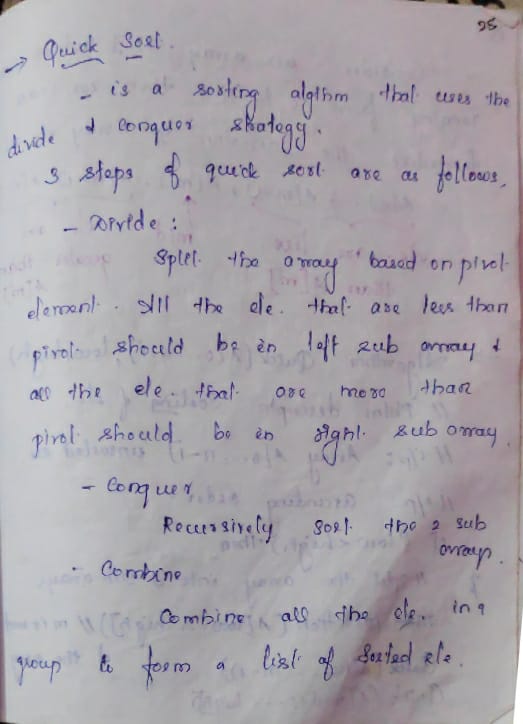 25
→ Quick Sort.
- is a sorting algthm that uses the
divide & conquer strategy.
3 steps of quick sort are as follows.
- Divide :
Split the array based on pivot
element. All the ele. that are less than
pivot should be in left sub array &
all the ele. that are more than
pivot should be in right sub array.
- Conquer
Recursively sort the 2 sub
arrays.
- Combine
Combine all the ele. in a
group to form a list of sorted ele.